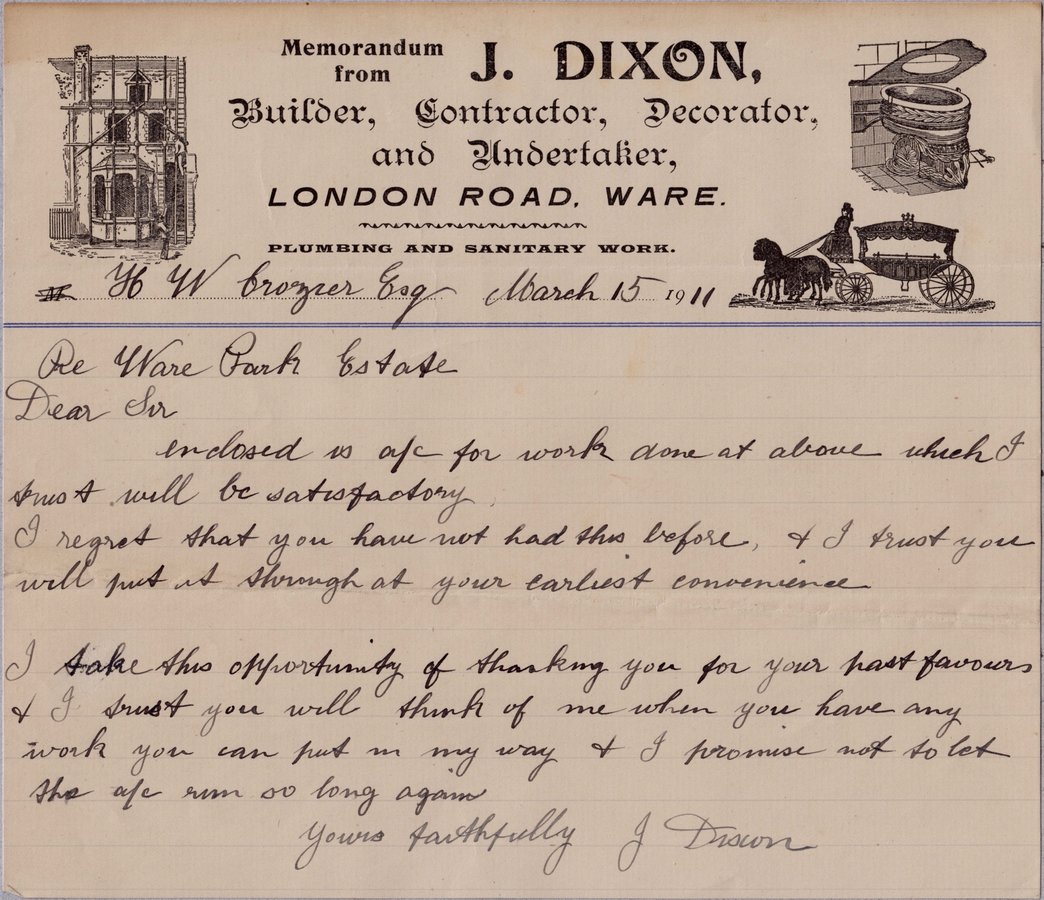 Memorandum
from
J. DIXON,
Builder, Contractor, Decorator,
and Undertaker,
LONDON ROAD, WARE.
PLUMBING AND SANITARY WORK.
H W Crozier Esq March 15 1911
Re Ware Park Estate
Dear Sir
enclosed is a/c for work done at above which I
trust will be satisfactory
I regret that you have not had this before, & I trust you
will put it through at your earliest convenience
I take this opportunity of thanking you for your past favours
& I trust you will think of me when you have any
work you can put in my way & I promise not to let
the a/c run so long again
Yours faithfully J Dixon